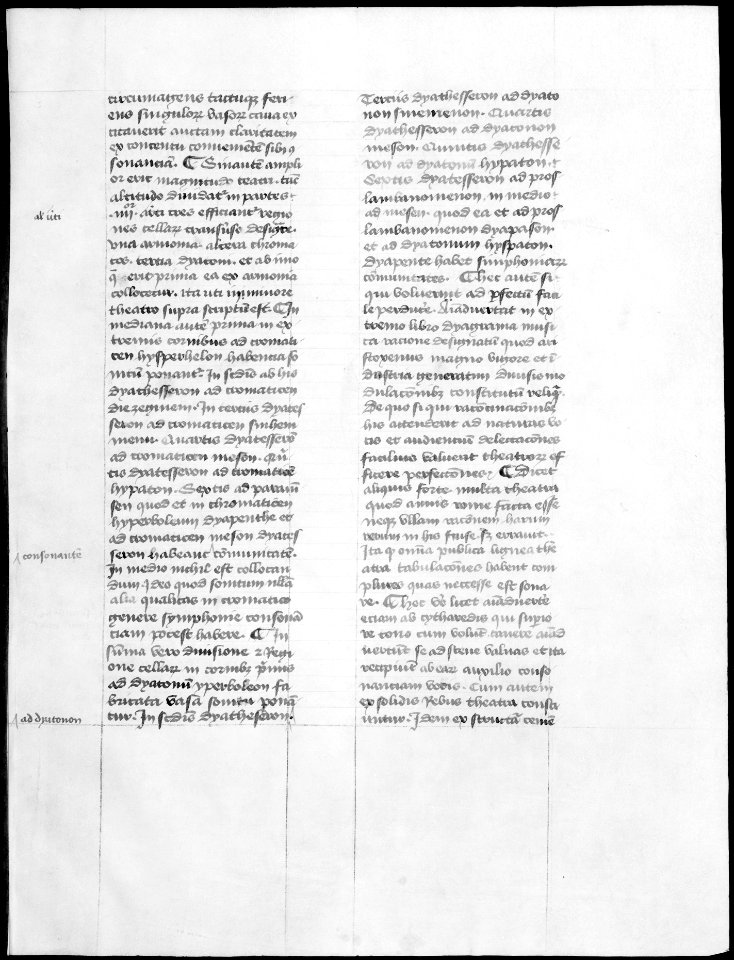 circumagens tactuqꝫ feri
ens singuloꝝ vasoꝝ caua ex
citauerit auctam claritatem
ex concentu conuenientē sibi ꝯ
sonantiā. Sin autē ampli
or erit magnitudo teatri. tūc
altitudo diuidat͛ in partes
al' uti
.iiij.or uti tres efficiant͛ regio
nes cellaꝝ transūso designate.
vna armonia. altera chroma
tos. tertia dyatom. et ab imo
q̄ erit prima ea ex armonia
collocetur. ita uti in minore
theatro supra scriptū est. In
mediana autē prima in ex
tremis cornibus ad cromati
cen hysperbelon habencia so
nitū ponant͛. In scd̄is ab his
dyathesseron ad cromaticen
diezegmen. In terciis dyates
seron ad cromaticen sinhem
menu. Quartis dyatesserō
ad cromaticen meson. Qui
tis dyatesseron ad cromaticē
hypaton. Sextis ad paramē
sen quod et in chromaticen
hyperboleum dyapenthe et
ad cromaticen meson dyates
consonantē
seron habeant cōmunitatē.
In medio nichil est collocan
dum. ideo quod sonitum nlla
alia qualitas in cromatico
genere symphonie consonā
tiam potest habere. In
sūma vero diuisione ⁊ regi
one cellaꝝ in cornibꝫ p̄mis
ad dyatonū yperboleon fa
bricata vasa sonitu ponā
ad dyatonon
tur. In scd̄is dyatheseron.
Terciis dyathesseron ad dyato
non sinemenon. Quartis
dyathesseron ad dyatonon
meson. Quintis dyathesse
ron ad dyatonū hypaton.
Sextis dyatesseron ad pros
lambanomenon. in medio
ad mesen. quod ea et ad pros
lambanomenon dyapason.
et ad dyatonum hyspaton.
dyapente habet simphoniaꝝ
cōmunitates. Hec autē si
qui voluerint ad ꝑfectū faci
le perducē. Aiaduertat in ex
tremo libro dyagrama musi
ca racione designatū quod ari
stoxenus magno vigore et ī
dustria generatim diuisis mo
dulacōnibꝫ constitutū reliq̄.
De quo si qui racōcinacōnibꝫ
his attenderit ad naturas vo
cis et audientiū delectacōnes
facilius valuerit theatroꝝ ef
ficere perfectōnes. Dicet
aliquis forte multa theatra
quod annis rome facta esse
neqꝫ vllam racōnem harum
rerum in his fuisse. sꝫ erranit.
Ita q omīa publica lignea the
atra tabulacōnes habent com
plures quas neccesse est sona
re. Hec vō licet aīaduerte
etiam ab cytharedis qui supio
re tono cum volunt canere auād
uertunt se ad scene valuas et ita
recipiunt ab eaꝝ auxilio conso
nanciam vocis. Cum autem
ex solidis rebus theatra consti
untur. Idem ex structa cemē